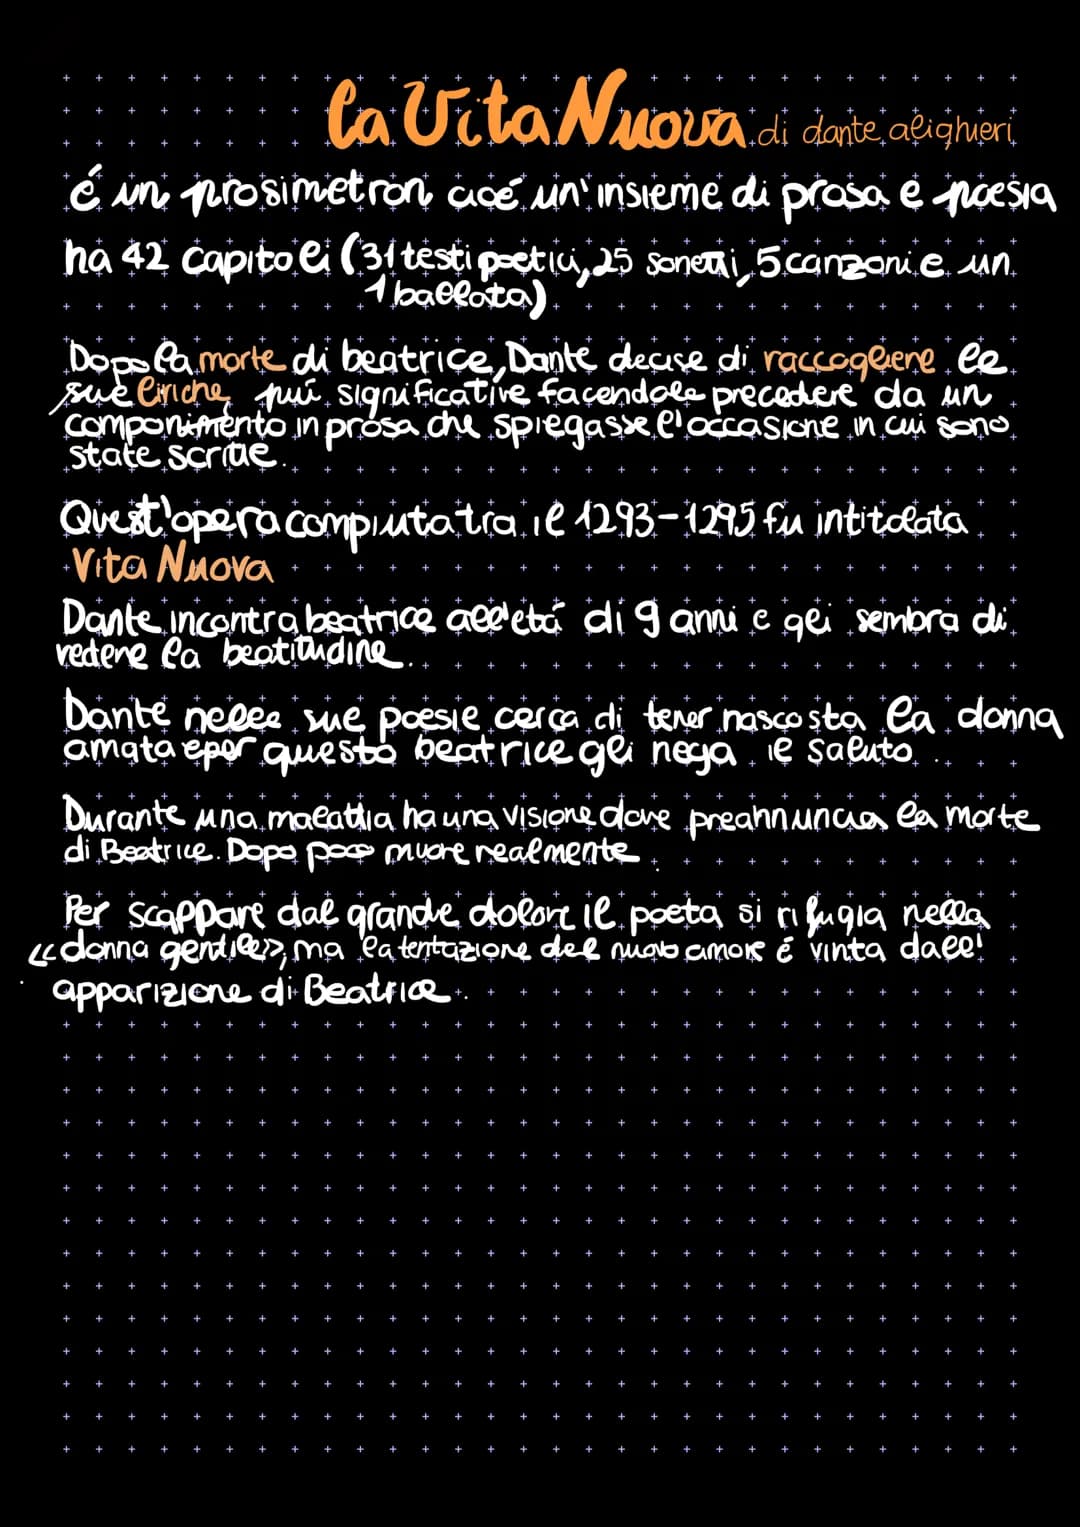 la Vita Nuova di dante alighieri
é un prosimetron cioé un'insieme di prosa e poesia
ha 42 capitoli (31 testi poetici, 25 sonetti, 5 canzoni e un
1 ballata)
Dopo la morte di beatrice, Dante decise di raccogliere le
sue liriche piú significative facendole precedere da un
componimento in prosa che spiegasse l'occasione in cui sono
state scritte.
Quest'opera compiuta tra il 1293-1295 fu intitolata
Vita Nuova
Dante incontra beatrice all'etá di 9 anni e gli sembra di
vedere la beatitudine.
Dante nelle sue poesie cerca di tener nascosta la donna
amata e per questo beatrice gli nega il saluto.
Durante una malattia ha una visione dove preannuncia la morte
di Beatrice. Dopo poco muore realmente
Per scappare dal grande dolore il poeta si rifugia nella
«donna gentile», ma la tentazione del nuovo amore é vinta dall'
apparizione di Beatrice.